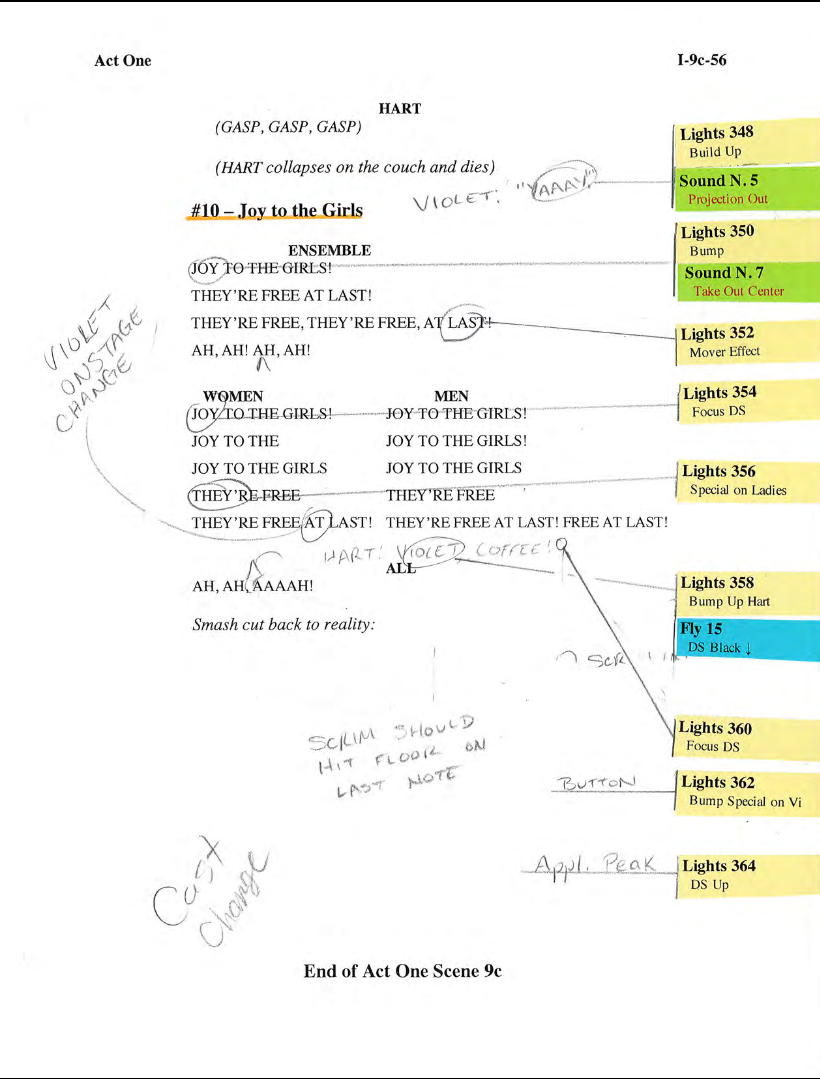 Act One
I-9c-56
HART
(GASP, GASP, GASP)
(HART collapses on the couch and dies)
VIOLET: "YAAAY!"
Lights 348
Build Up
Sound N. 5
Projection Out
#10 – Joy to the Girls
ENSEMBLE
JOY TO THE GIRLS!
Lights 350
Bump
Sound N. 7
Take Out Center
THEY'RE FREE AT LAST!
THEY'RE FREE, THEY'RE FREE, AT LAST!
Lights 352
Mover Effect
AH, AH! AH, AH!
VIOLET
ONSTAGE
CHANGE
WOMEN MEN
JOY TO THE GIRLS! JOY TO THE GIRLS!
Lights 354
Focus DS
JOY TO THE JOY TO THE GIRLS!
JOY TO THE GIRLS JOY TO THE GIRLS
THEY'RE FREE THEY'RE FREE
Lights 356
Special on Ladies
THEY'RE FREE AT LAST! THEY'RE FREE AT LAST! FREE AT LAST!
HART: VIOLET, COFFEE!
ALL
AH, AH, AAAAH!
Lights 358
Bump Up Hart
Fly 15
DS Black ↓
Smash cut back to reality:
SCRIM SHOULD
HIT FLOOR ON
LAST NOTE
Lights 360
Focus DS
BUTTON
Lights 362
Bump Special on Vi
Cast
Change
Appl. Peak
Lights 364
DS Up
End of Act One Scene 9c